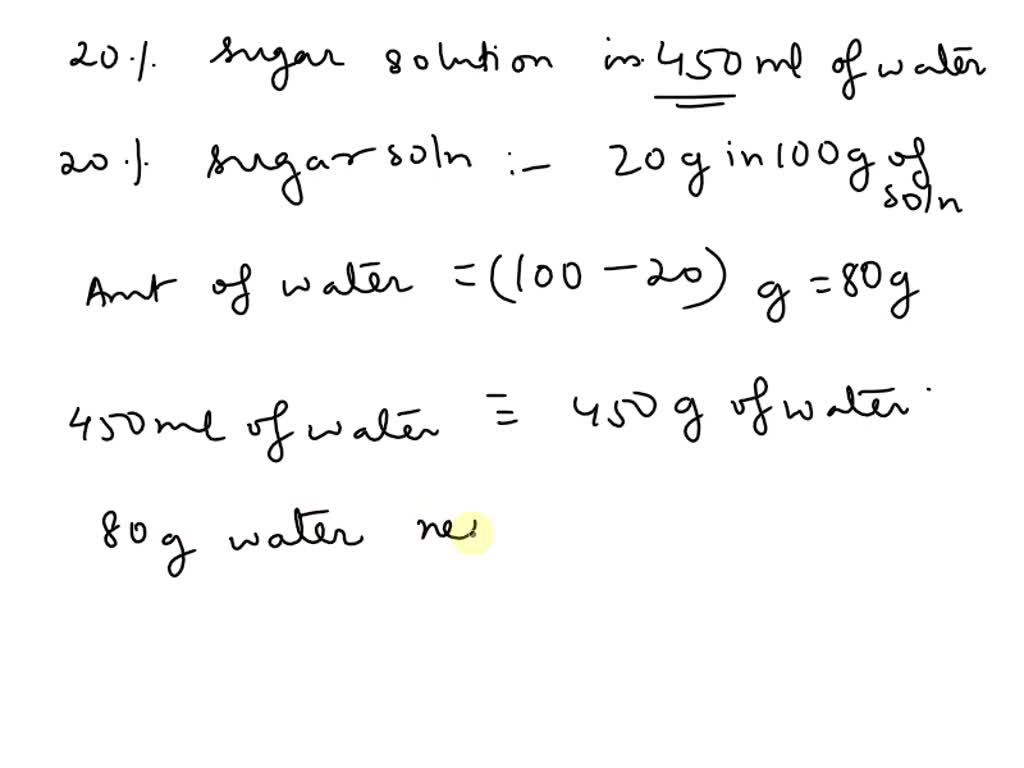 20 ·/. sugar solution in 450 ml of water
20 ·/. sugar soln :- 20 g in 100 g of soln
Amt of water = (100 - 20) g = 80 g
450 ml of water ≡ 450 g of water.
80 g water ne